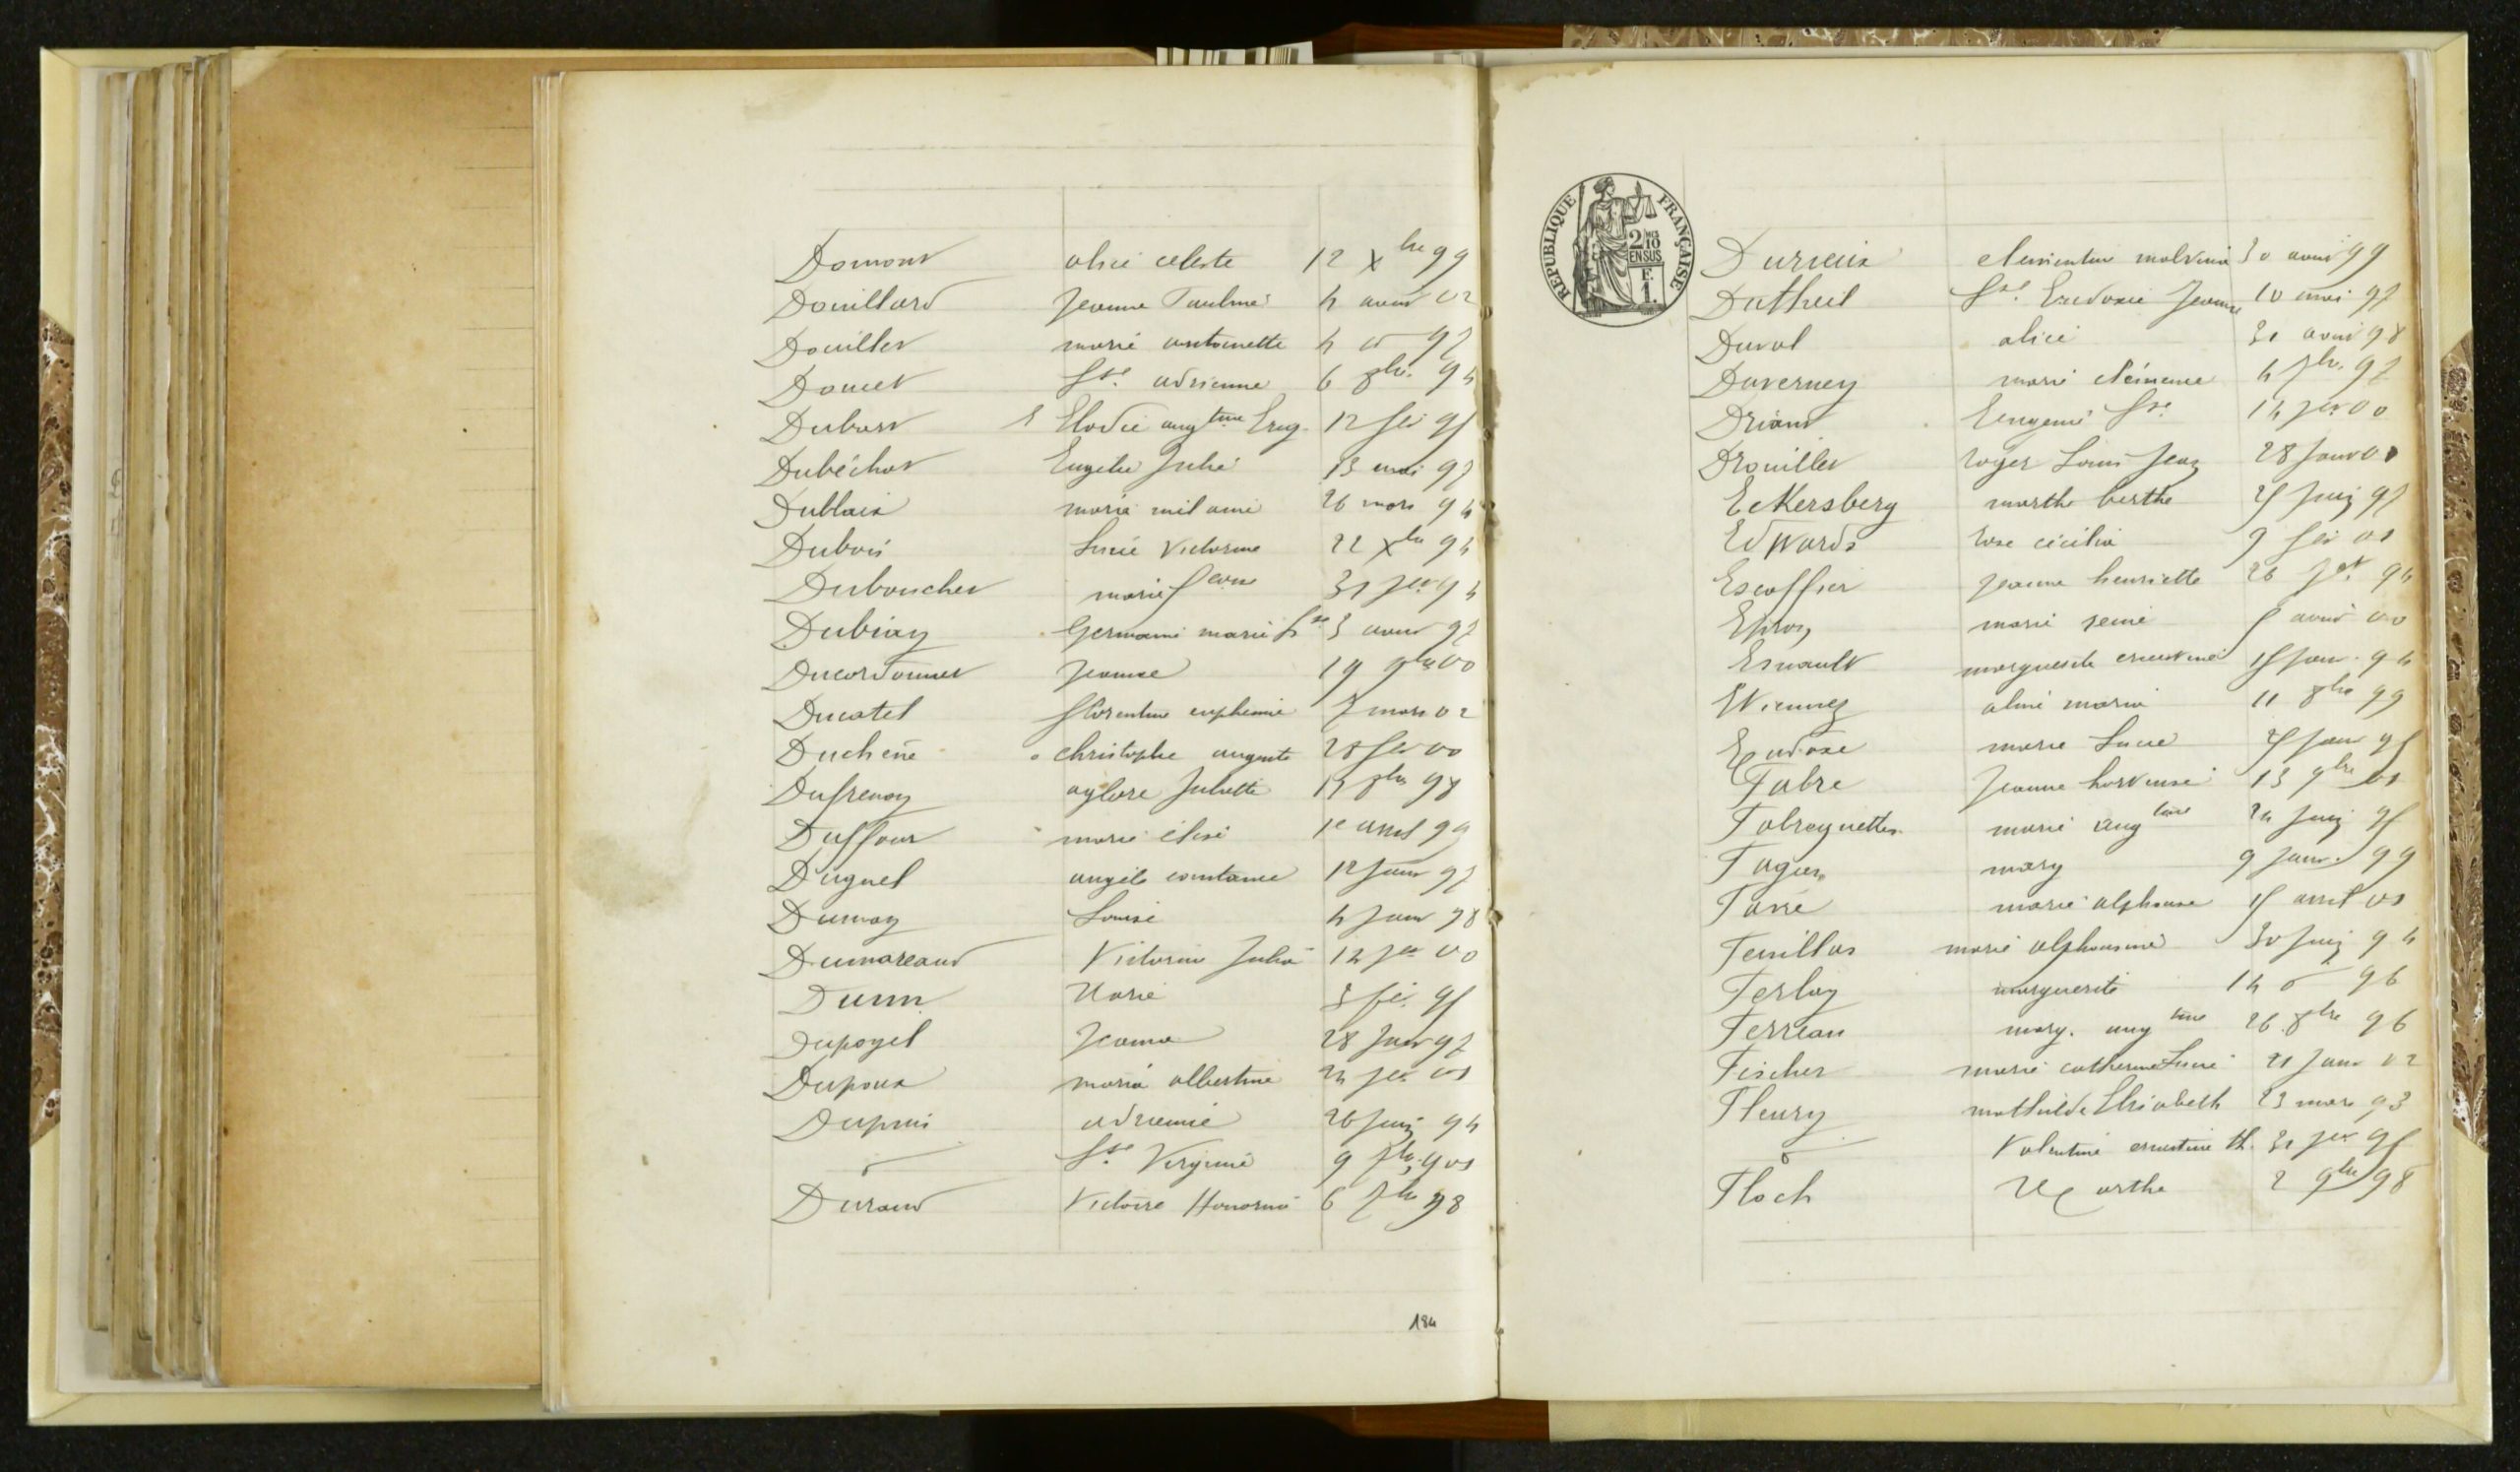 Domont alice celeste 12 Xbre 99
Douillard Jeanne Pauline 4 août 02
Douillet marie antoinette 4 d° 97
Doucet fse adrienne 6 8bre 94
Dubost Elodie augtine Eug. 12 fev 95
Dubéchot Eugénie Julie 13 mai 97
Dublaix maria mélanie 26 mars 94
Dubois Lucie Victorine 22 Xbre 94
Duboucher marie 31 94
Germaine marie fse 3 août 97
Ducordonnet Jeanne 19 9bre 00
Ducatel florentine euphemie 7 mars 02
Duchêne christophe auguste 28 fev 00
Dufrenoy aglore Juliette 8bre 98
Duffour marie élise 1e avril 99
Duguet angèle constance 12 Janv 97
Dumay Louise 4 Janv 98
Dumareaud Victorine Julia 14 00
Dunn Marie 3 fév. 95
Jeanne 28 Janv 97
Dupoux maria albertine 24 01
Dupuis adrienne 26 juin 94
d° fse Virginie 9 901
Durand Victoire Honorine 6 7bre 98
184
REPUBLIQUE FRANÇAISE
2/10 EN SUS
F. 1.
Durieux clementine malvina 30 août 99
Dutheil fse Eudoxie Jeanne 10 mai 97
Duval alice 31 août 98
Duverney marie clémence 4 7bre 97
Driant Eugenie fse 14 00
Drouillet roger Louis Jean 28 Janv 01
Eckersberg marthe berthe 25 Juin 97
Edwards rose cécilia 9 fev 01
Escoffier jeanne henriette 26 94
marie reine 5 août 00
Esnault marguerite ernestine 15 Janv. 94
aline maria 11 8bre 99
Eudoxe marie Lucie 25 Janv 95
Fabre Jeanne hortense 13 9bre 01
Fabreguettes marie augtine 24 Juin 95
Fagen mary 9 Janv. 99
Favre marie alphonse 15 avril 01
Feuillas marie alphonsine 30 Juin 94
Ferlay marguerite 14 d° 96
Ferreau marg. augtine 26 8bre 96
Fischer marie catherine Lucie 21 Janv 02
Fleury mathilde Elisabeth 23 mars 93
d° Valentine ernestine th. 31 95
Floch Marthe 2 9bre 98